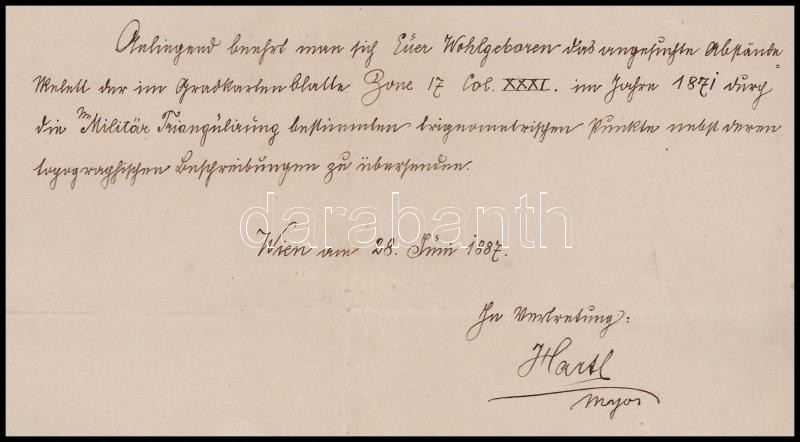 Anliegend beehrt man sich Euer Wohlgeboren das angesuchte Abstände=
skelett der im Gradkartenblatte Zone 17 Col. XXXI. im Jahre 1871 durch
die Militär Triangülirüng bestimmten trigonometrischen Punkte nebst deren
topographischen Beschreibungen zu übersenden.
darabanth
Wien am 28. Jüni 1887.
In Vertretung:
Hartl
Major